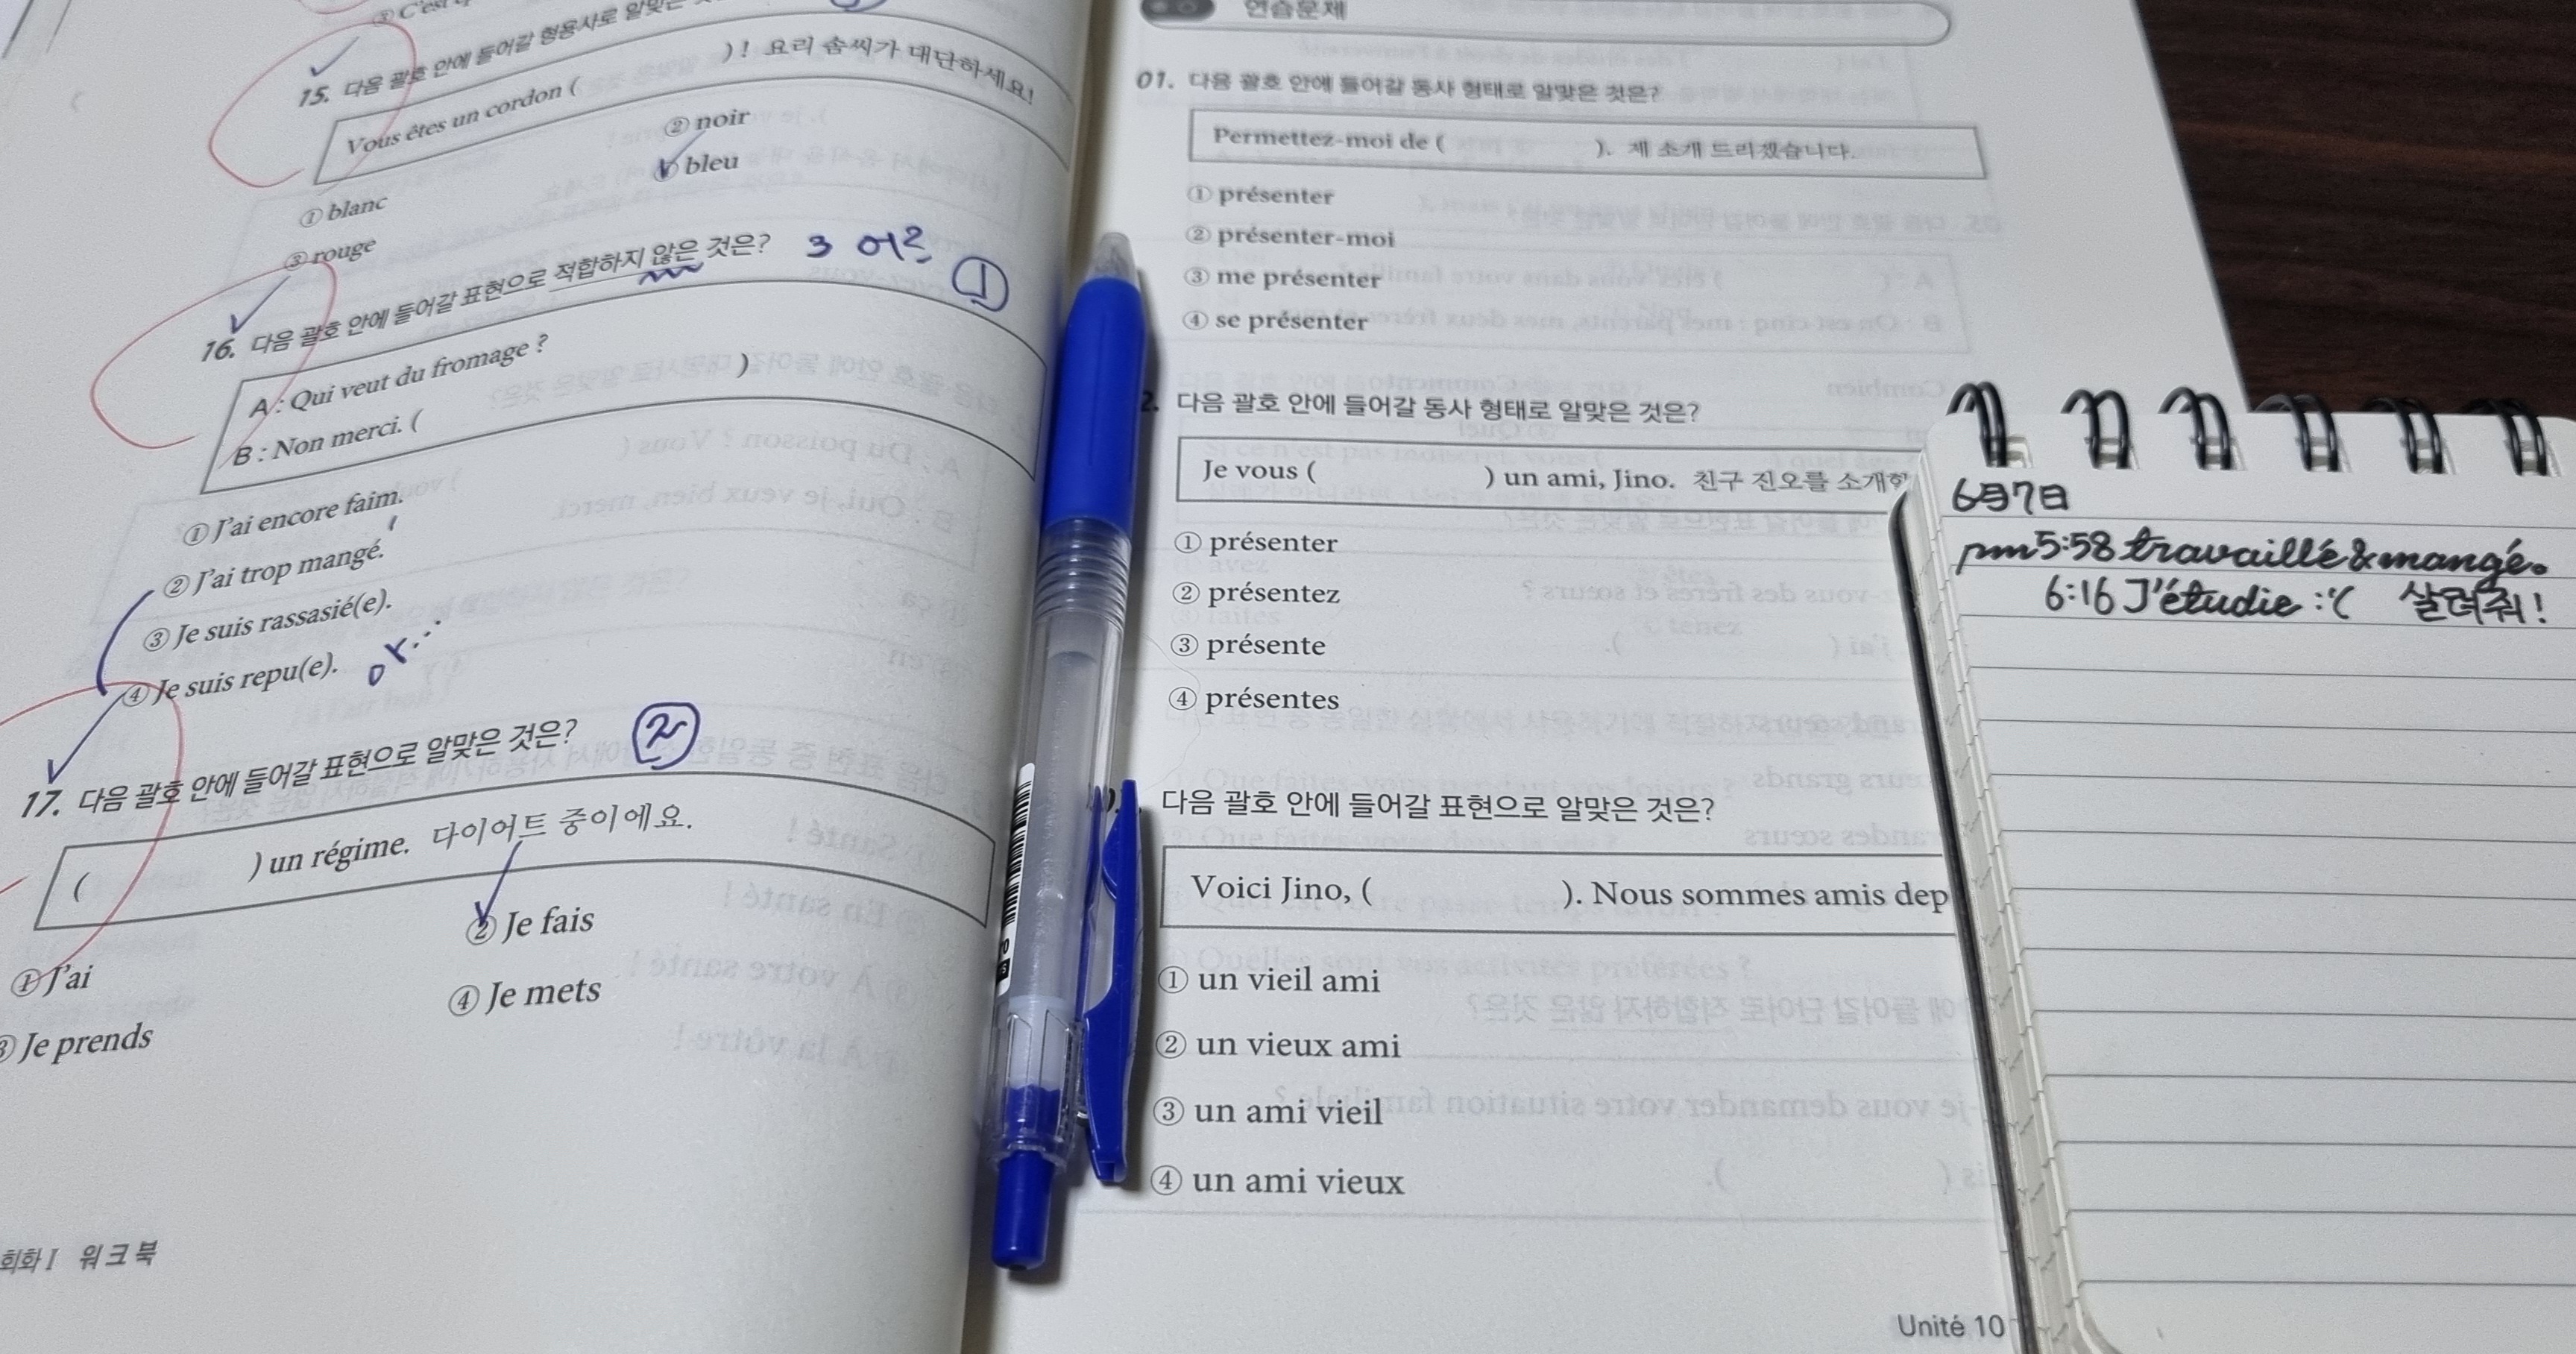 ③ C'est
15. 다음 괄호 안에 들어갈 형용사로 알맞은
Vous êtes un cordon ( )! 요리 솜씨가 대단하세요!
① blanc
② noir
③ rouge
bleu
16. 다음 괄호 안에 들어갈 표현으로 적합하지 않은 것은?
3 어?
①
A : Qui veut du fromage ?
B : Non merci. ( )
① J'ai encore faim.
② J'ai trop mangé.
③ Je suis rassasié(e).
④ Je suis repu(e).
17. 다음 괄호 안에 들어갈 표현으로 알맞은 것은?
②
( ) un régime. 다이어트 중이에요.
① J'ai
② Je fais
③ Je prends
④ Je mets
회화 I 워크북
연습문제
01. 다음 괄호 안에 들어갈 동사 형태로 알맞은 것은?
Permettez-moi de ( ). 제 소개 드리겠습니다.
① présenter
② présenter-moi
③ me présenter
④ se présenter
2. 다음 괄호 안에 들어갈 동사 형태로 알맞은 것은?
Je vous ( ) un ami, Jino. 친구 진오를 소개
① présenter
② présentez
③ présente
④ présentes
다음 괄호 안에 들어갈 표현으로 알맞은 것은?
Voici Jino, ( ). Nous sommes amis dep
① un vieil ami
② un vieux ami
③ un ami vieil
④ un ami vieux
Unité 10
6月7日
pm5:58 travaillé & mangé.
6:16 J'étudie :'( 살려줘!